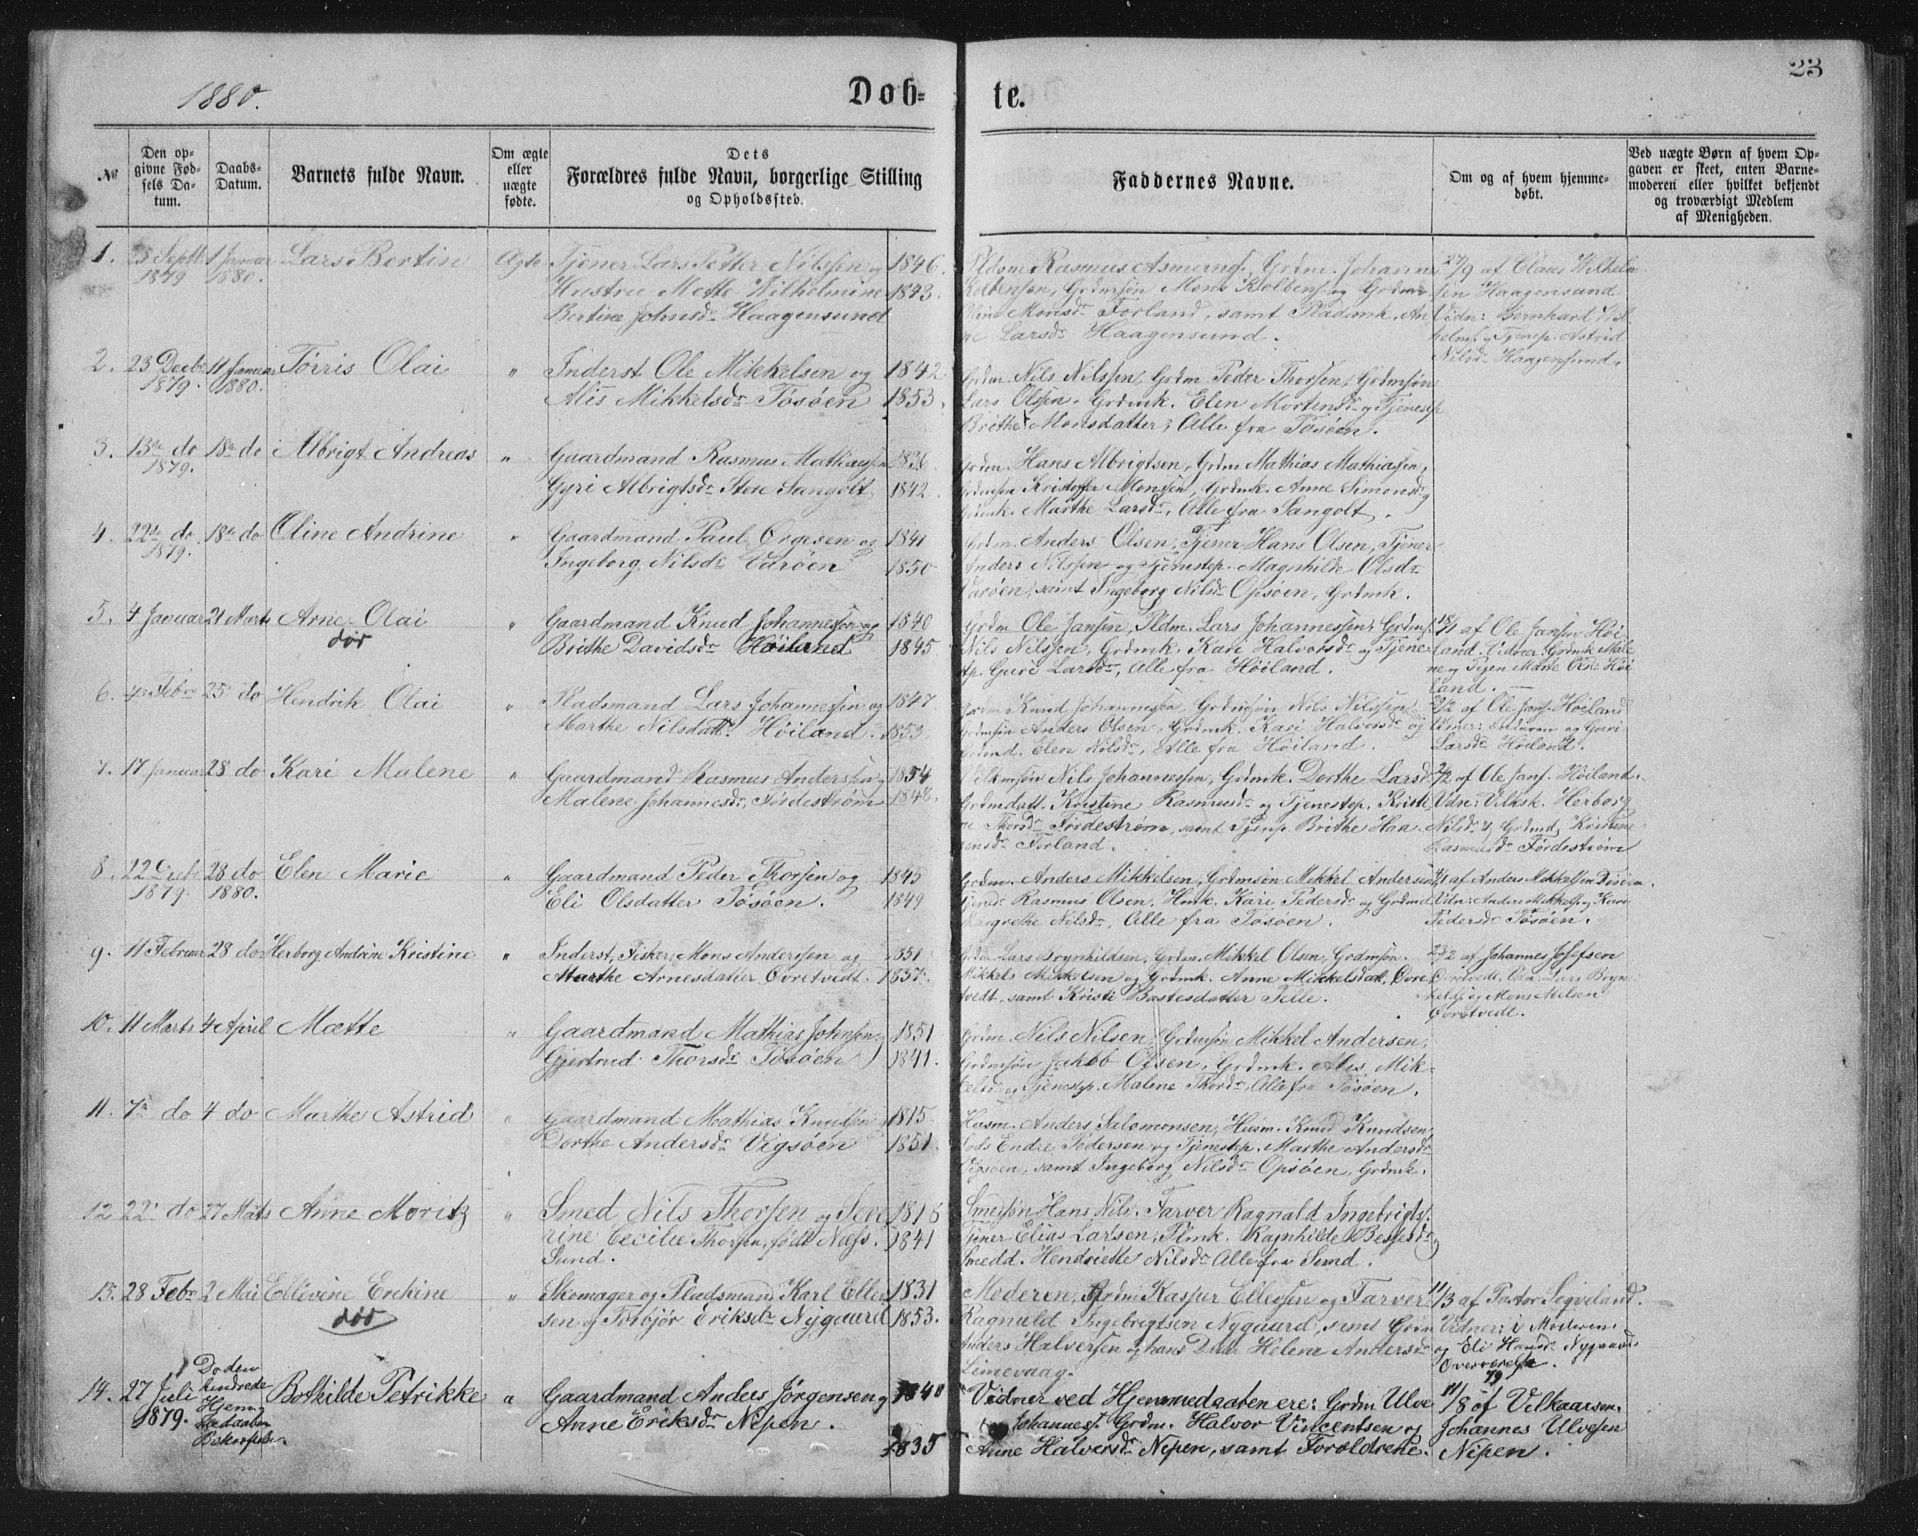 1880.
Dob-
te.
23
№
Den op-
givne Fød-
sels Da-
tum.
Daabs-
Datum.
Barnets fulde Navn.
Om ægte
eller
uægte
fødte.
Dets
Forældres fulde Navn, borgerlige Stilling
og Opholdssted.
Faddernes Navne.
Om og af hvem hjemme-
døbt.
Ved uægte Børn af hvem Op-
gaven er skeet, enten Barne-
moderen eller hvilket bekjendt
og troværdigt Medlem
af Menigheden.
1. Septb 1 Januar Lars Bertin Ægte Tjener Lars Petter Nilssen og 1846.
1879 1880. Hustru Mette Wilhelmine 1843.
Bertine Johnsdr Haagensund
Rasmus Asmunds, Grdm. Johannes
Kolbensen, Grdmsøn Mons Kolbens og Grdmk
Monsdr Forland, samt Pladsmk. An-
ne Larsdr Haagensund.
27/9 af Claus Wilhelm-
sen Haagensund
Vidn: Bernhard Vil-
helms og Tjenp. Astrid
Nilsdr Haagensund.
2. 23 Decbr 11 Januar Tørris Olai " Inderst Ole Mikkelsen og 1842.
1879. 1880. Alis Mikkelsdr Tøsøen 1853.
Grdm. Nils Nilssen, Grdm Peder Thorsen, Grdmsøn
Lars Olsen, Grdmk. Elen Mortensdr og Tjenestep
Brithe Monsdatter, Alle fra Tøsøen.
3. 13de do 18de do Albrigt Andreas " Gaardmand Rasmus Mathiassen 1836
1879. Gyri Albrigtsdr Store Sangolt 1842.
Grdm. Hans Albrigtsen, Grdm Mathias Mathiassen,
Grdmsøn Kristoffer Monsen, Grdmk. Anne Simonsdr og
Grdmk. Marthe Larsdr, Alle fra Sangolt.
4. 22de do 18de do Oline Andrine " Gaardmand Paul Orgesen og 1841
1879. Ingeborg Nilsdr Varøen 1850
Grdm. Anders Olsen, Tjener Hans Olsen, Tjener
Anders Nilssen og Tjenstep. Magnhilde Olsdr
Varøen, samt Ingeborg Nilsdr Opsøen, Grdmk.
5. 4 Januar 21 Marts Arne Olai " Gaardmand Knud Johannessen og 1840
død Brithe Davidsdr Høiland 1845
Grdm Ole Jansen, Pldm. Lars Johannessen, Grdms.
Nils Nilssen, Grdmk. Kari Halvorsdr og Tjene-
stp. Guri Larsdr, Alle fra Høiland.
18/1 af Ole Jansen Høi-
land. Vidner: Grdmk Male-
ne og Pigen Marte Olsdr Høi-
land.
6. 4 Febr 25 do Hendrik Olai " Pladsmand Lars Johannessen og 1847
Marthe Nilsdatt. Høiland 1853
Grdm Knud Johannessen, Grdmsøn Nils Nilssen
Grdmsøn Anders Olsen, Grdmk. Kari Halvorsdr og
Grdmd. Elen Nilsdr, Alle fra Høiland.
2/2 af Ole Jans. Høiland
Vidner: og Guri
Larsdr Høiland.
7. 17 Januar 28 do Kari Malene " Gaardmand Rasmus Anderssen og 1854
Malene Johannesdr Førdestrøm 1848.
Nils Johannessen, Grdmk. Dorthe Larsd
Grdmdatt. Kristine Rasmusdr og Tjenestep. Kristi-
ne Thorsdr Førdestrøm, samt Tjenp. Brithe Haa-
gensdr Forland.
2/2 af Ole Jans. Høiland.
Vdn: Vilksk. Herborg
Nilsdr og Grdmd. Kristine
Rasmusdr Førdestrøm
8. 22 Decbr 28 do Elen Marie " Gaardmand Peder Thorsen og 1845
1879. 1880. Eli Olsdatter Tøsøen. 1849
Grdm. Anders Mikkelsen, Grdmsøn Mikkel Andersen,
Rasmus Olsen, Hmk. Kari Pedersdr og Grdmd
Margrethe Nilsdr, Alle fra Tøsøen.
af Anders Mikkelsen Tøsøen.
Vidn: Anders Mikkels og Kari
Pedersdr Tøsøen.
9. 11 Februar 28 do Herborg Andrine Kristine " Inderst, Fisker, Mons Anderssen og 1851
Marthe Arnesdatter Øvretvedt. 1857.
Grdm Lars Brynhildsen, Grdm. Mikkel Olsen, Grdmsøn.
Mikkel Mikkelsen og Grdmk. Anne Mikkelsdatt. Øvre-
tvedt, samt Kristi Bastesdatter Tille.
23/2 af Johannes Josefsen
Øvretvedt. Vdn: Lars Bryn-
helsp og Mons Nilsen
Øvretvedt.
10. 11 Marts 4 April Mætte " Gaardmand Mathias Johnsen og 1851
Gjertrud Thorsdr Tøsøen 1841.
Grdm. Nils Nilsen, Grdmsøn Mikkel Andersen,
Grdmsøn Jakob Olsen, Grdmk. Alis Mik-
kelsd og Tjenestep. Malene Thorsdr, Alle fra Tøsøen.
11. 7de do 4 do Marthe Astrid " Gaardmand Mathias Knudsen 1815
Dorthe Andersdr Vigsøen 1851.
Husm. Anders Salomonsen, Husm. Knud Knudsen,
Lods Endre Pedersen og Tjenestep. Marthe Andersdr
Vigsøen, samt Ingeborg Nilsdr Opsøen, Grdmk.
12. 22de do 27 Mats Anne Moritz " Smed Nils Thorsen og Seve- 1818
rine Cecilie Thorsen, født Næss. 1841
Sund.
Smedsøn Hans Nils. Farver Ragnald Ingebrigts.
Tjener Elias Larsen, Plmk. Ragnhilde Bessesdr og
Smedd. Hendriette Nilsdr Alle fra Sund.
13. 28 Febr 2 Mai Ellevine Erekine " Skomager og Pladsmand Karl Ellef- 1831
død sen og Torbjør Eriksdr Nygaard 1853.
Moderen, Grdm Kasper Ellefsen og Farver
Ragnald Ingebrigtsen Nygaard, samt Grdm
Anders Halversen og hans Datt. Helene Andersdr
Limevaag.
11/3 af Pastor Sigveland.
Vidner: i Moderens
og Eli Hansdr Nygaards
Overværelse.
14. 27 Juli Døden Bothilde Petrikke " Gaardmand Anders Jørgensen og 1840
1879. hindrede Anne Eriksdr Nipen. 1835
Hjem-
medaaben
Bekræftelse
Vidner ved Hjemmedaaben ere: Grdm Ulve
Johannes. Grdm. Halvor Vincentsen og
Anne Halversdr Nipen, samt Forældrene.
79
11/8 af Vilkaarsm.
Johannes Ulvesen
Nipen.